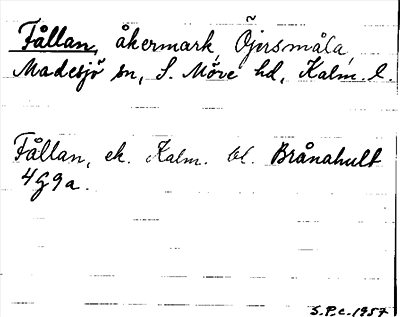 Fållan, åkermark, Öjersmåla,
Madesjö sn, S. Möre hd, Kalm. l.
Fållan, ek. Kalm. bl. Brånahult
4G9a.
S.P.c.1957